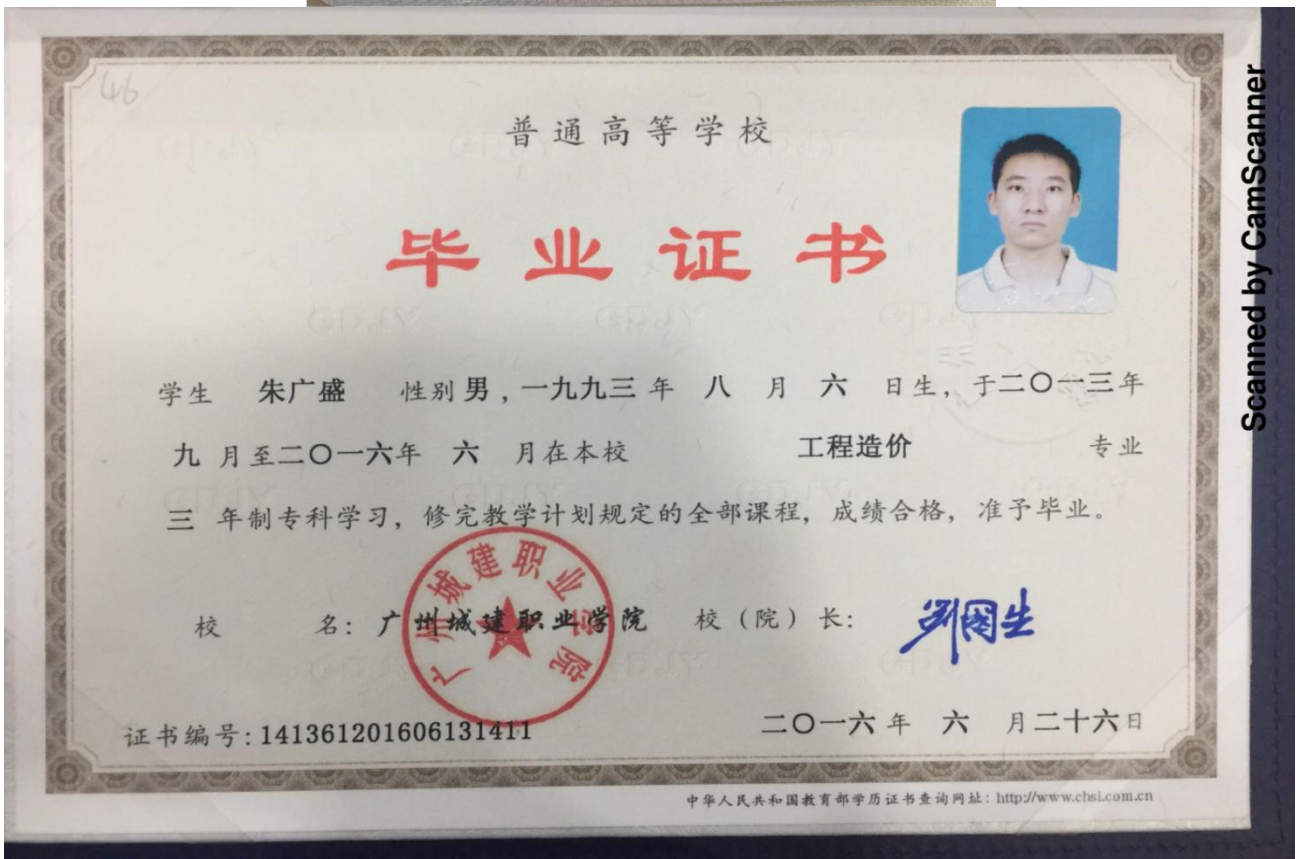 46
普通高等学校
毕业证书
学生 朱广盛 性别 男，一九九三 年 八 月 六 日生，于二〇一三年
九 月至二〇一六年 六 月在本校 工程造价 专业
三 年制专科学习，修完教学计划规定的全部课程，成绩合格，准予毕业。
广州城建职业学院
校 名：广州城建职业学院 校（院）长：
证书编号：141361201606131411 二〇一六 年 六 月二十六日
中华人民共和国教育部学历证书查询网址：http://www.chsi.com.cn
Scanned by CamScanner